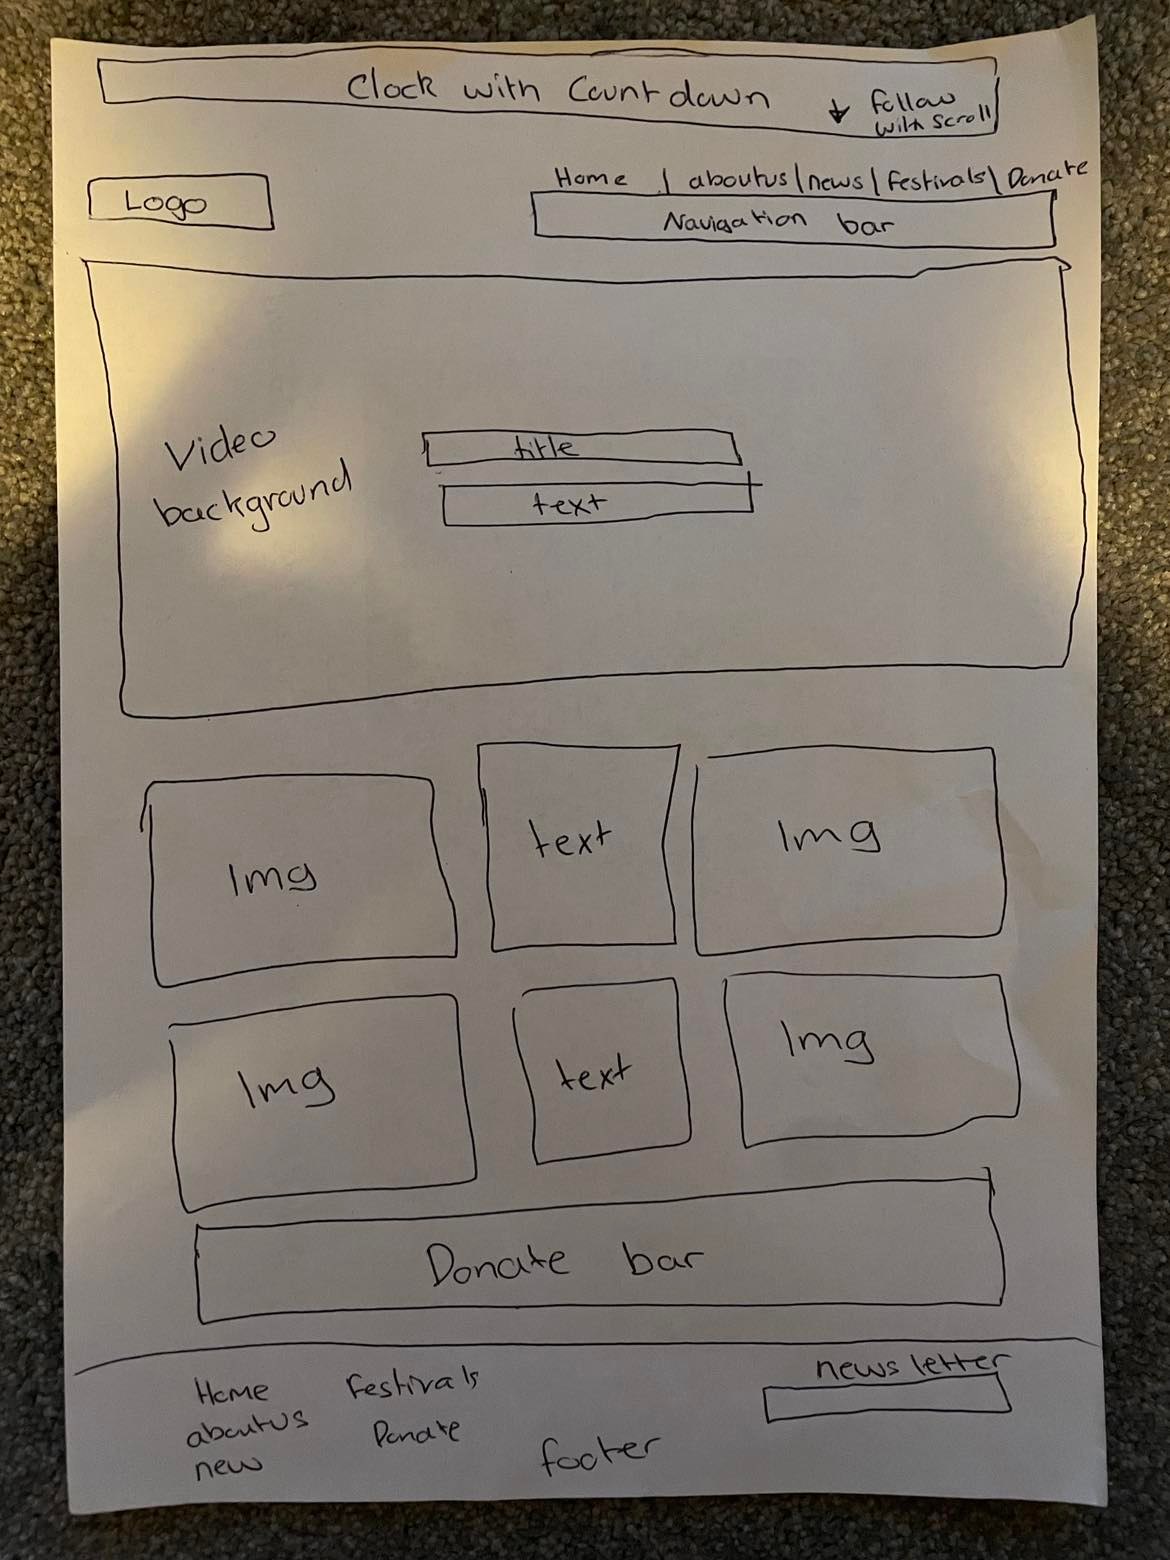 Clock with Countdown
↓ follow
with scroll
Home | aboutus | news | festivals | Donate
Logo
Navigation bar
Video
background
title
text
Img
text
Img
Img
text
Img
Donate bar
Home
aboutus
new
festivals
Donate
footer
news letter